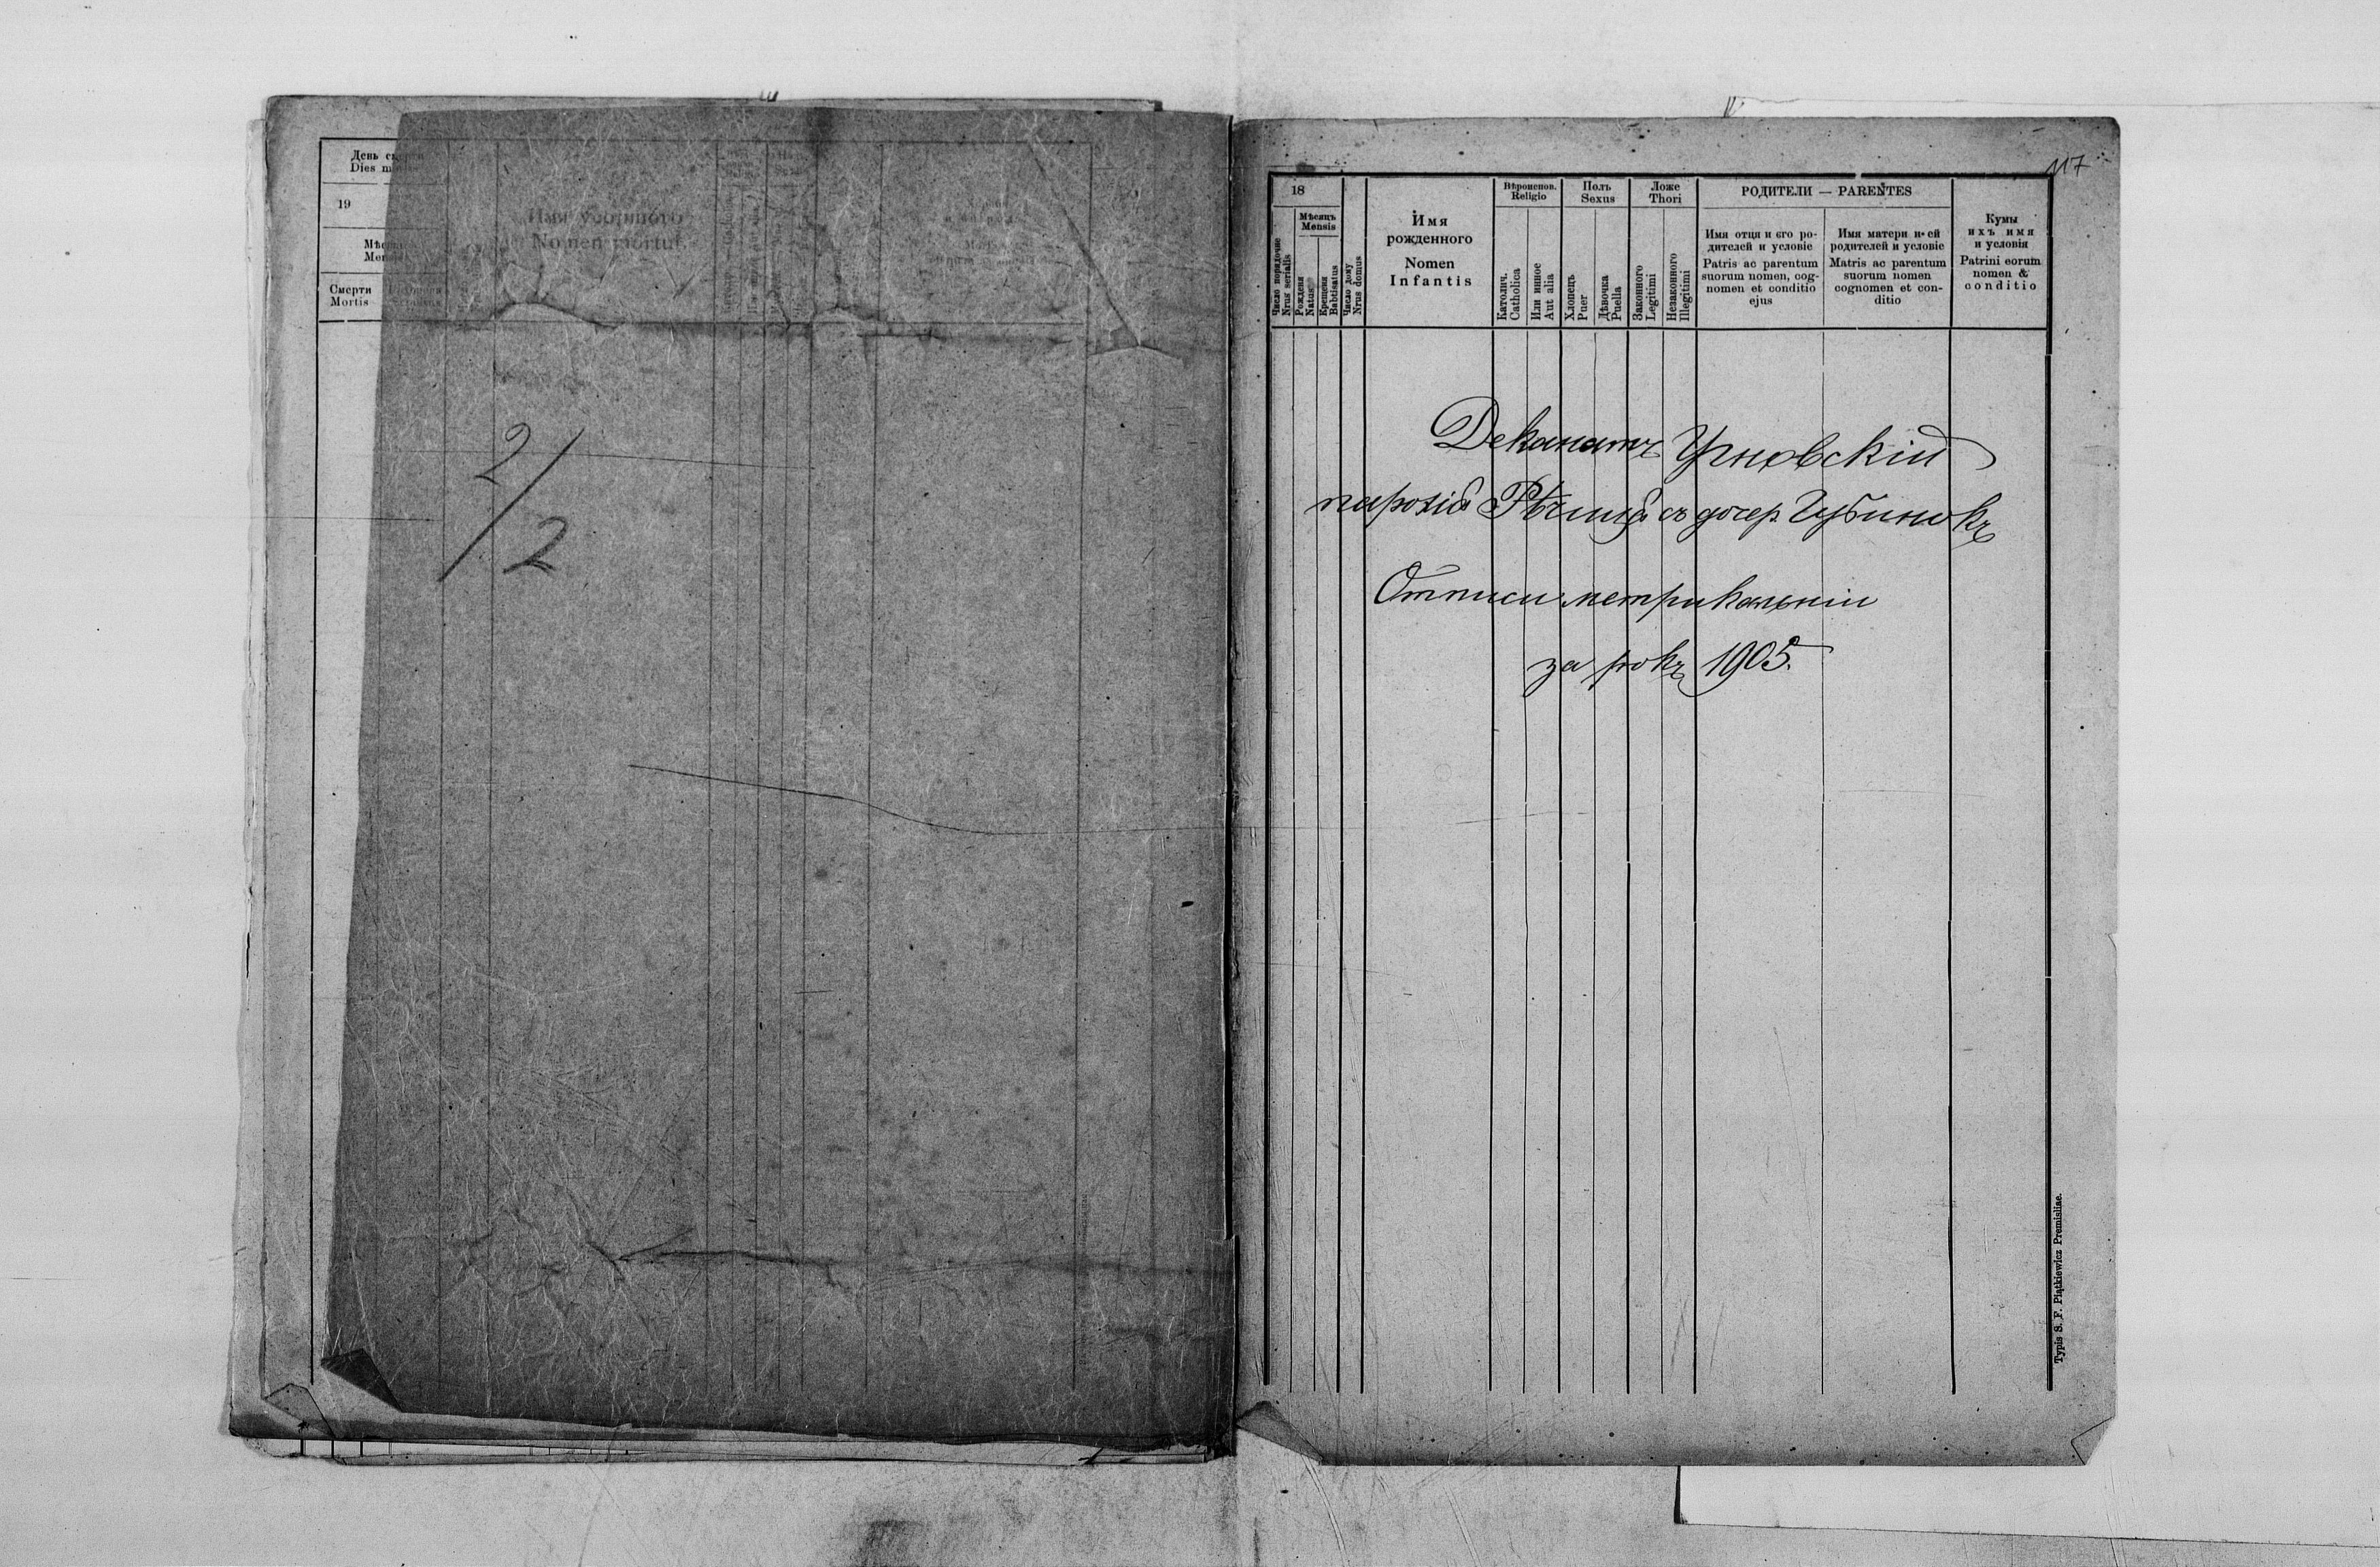 День
Dies
19
Смерти
Mortis
Имя
Nomen mortui
2/2
117
18
Мѣсяць
Mensis
Число порядочне
Nrus serialis
Рожденя
Natus
Крещеня
Babtisatus
Число дому
Nrus domus
Имя
рожденного
Nomen
Infantis
Вѣроиспов.
Religio
Католич.
Catholica
Или инное
Aut alia
Полъ
Sexus
Хлопецъ
Puer
Дѣвочка
Puella
Ложе
Thori
Законного
Legitimi
Незаконного
Illegitimi
РОДИТЕЛИ — PARENTES
Имя отця и єго ро-
дителей и условіе
Patris ac parentum
suorum nomen, cog-
nomen et conditio
ejus
Имя матери и ей
родителей и условіе
Matris ac parentum
suorum nomen
cognomen et con-
ditio
Кумы
ихъ имя
и условія
Patrini eorum
nomen &
conditio
Деканатъ Угновскій
парохія Рѣчиця съ дочер. Губинокъ
Отписи метрикальніи
за рокъ 1905.
Typis S. F. Piątkiewicz Premisliae.